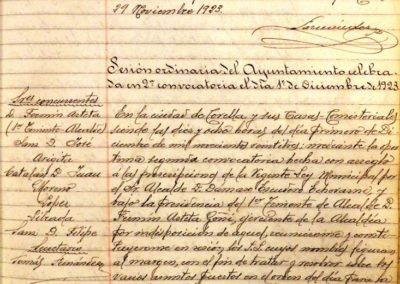 29 Noviembre 1923.
Sesión ordinaria del Ayuntamiento celebra-
da en 2ª convocatoria el día 1º de Diciembre de 1923
Sres concurrentes
D. Fermín Arteta
(1er Teniente Alcalde)
San D. José
Arigiti
Catalán D. Juan
Moreno
López
Sanz D. Felipe
Secretario
Tomás Fernández
En la ciudad de Corella y sus Casas-Consistoriales
siendo las diez y ocho horas del día primero de Di-
ciembre de mil novecientos veintitrés; mediante la opor-
tuna segunda convocatoria hecha con arreglo
á las prescripciones de la Vigente Ley Municipal por
el Sr. Alcalde D. Demaso
bajo la presidencia del 1er Teniente de Alcalde D.
Fermín Arteta Goñi, ejerciente de la Alcaldía
por indisposición de aquel, reunieronse y consti-
tuyeronse en sesión los Sres cuyos nombres figuran
al margen, con el fin de tratar y resolver sobre los
varios asuntos puestos en el orden del día para los